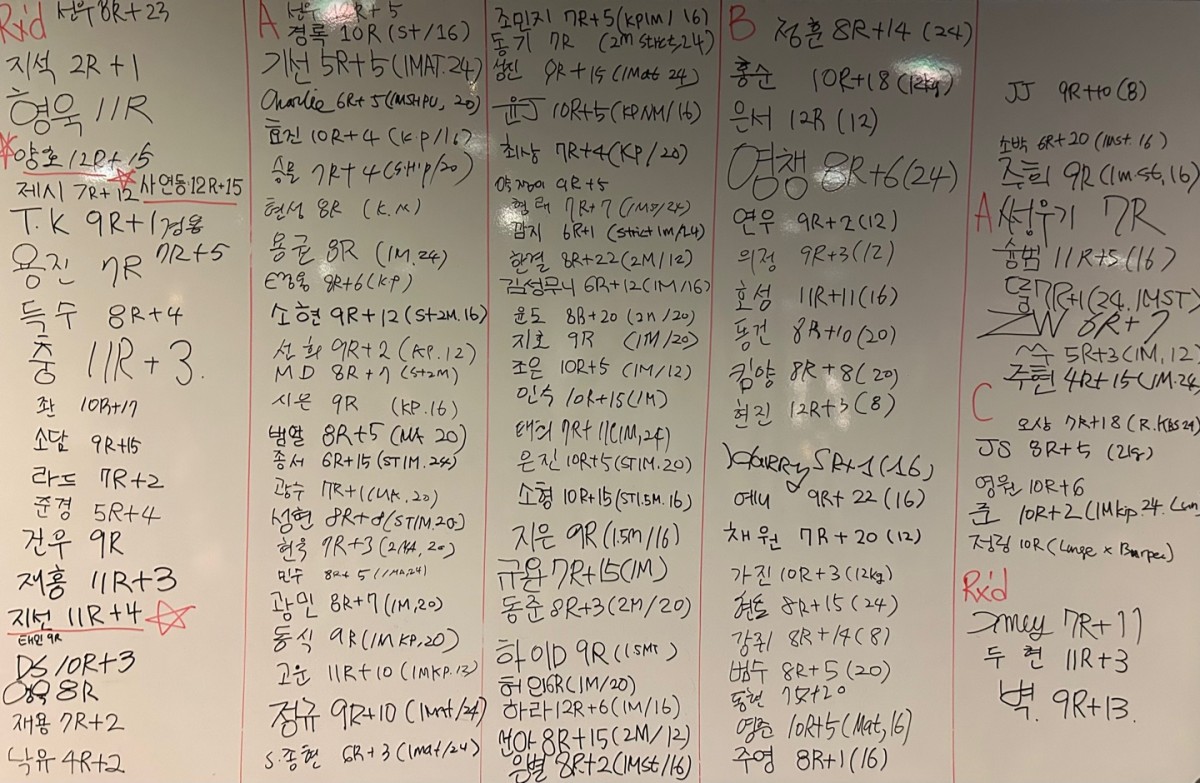 Rx'd 선우 8R+23
지석 2R+1
형욱 11R
양호 12R+15
제시 7R+12 사연동 12R+15
T.K 9R+1 경용 7R+5
용진 7R
득수 8R+4
충 11R+3.
좌 10R+17
소담 9R+15
라드 7R+2
준경 5R+4
건우 9R
재홍 11R+3
지선 11R+4
태민 9R
DS 10R+3
8R
재용 7R+2
낙유 4R+2
A
경록 10R (St/16)
기선 5R+5 (1MAT.24)
Charlie 6R+5 (1MSHPU, 20)
효진 10R+4 (K.P/16)
7R+4 (SHIP/20)
현성 8R (K.M)
용균 8R (1M.24)
8R+6 (KP)
소현 9R+12 (St+2M.16)
선희 9R+2 (KP.12)
MD 8R+7 (St+2M)
시은 9R (KP.16)
범열 8R+5 (MA 20)
종서 6R+15 (ST1M.24)
광수 7R+1
성현 8R+8 (ST1M.20)
현욱 7R+3
민수 8R+5
광민 8R+7 (1M,20)
동식 9R (1M KP,20)
고운 11R+10 (1MKP.13)
정규 9R+10 (1Mat/24)
S.종현 6R+3 (1mat/24)
조민지 7R+5 (KP1M/16)
동기 7R (2M strict,24)
9R+15 (1Mat 24)
윤J 10R+5 (KPNM/16)
최상 7R+4 (KP/20)
9R+5
형래 7R+7
깜지 6R+1 (strict 1m/24)
한결 8R+22 (2M/12)
김성무니 6R+12 (1M/16)
윤도 8R+20 (2M/20)
지호 9R (1M/20)
조은 10R+5 (1M/12)
인수 10R+15 (1M)
태희 7R+11 (1M,24)
은진 10R+5 (ST1M.20)
소형 10R+15 (ST1.5M.16)
지은 9R (1.5m/16)
규환 7R+15 (1M)
동준 8R+3 (2M/20)
하이D 9R (1.5MT)
허인 6R (1M/20)
하라 12R+6 (1M/16)
선아 8R+15 (2M/12)
은별 8R+2 (1Mst/16)
B 정훈 8R+14 (24)
홍순 10R+18 (12kg)
은서 12R (12)
영챙 8R+6 (24)
연우 9R+2 (12)
의정 9R+3 (12)
호성 11R+11 (16)
동건 8R+10 (20)
킴양 8R+8 (20)
현진 12R+3 (8)
Harry 5R+1 (16)
예니 9R+22 (16)
채원 7R+20 (12)
가진 10R+3 (12kg)
현도 8R+15 (24)
강쥐 8R+14 (8)
범수 8R+5 (20)
동현
영준 10R+5 (Mat,16)
주영 8R+1 (16)
JJ 9R+10 (8)
소박 6R+20 (1mst.16)
주희 9R (1m.st,16)
A 서우기 7R
슝범 11R+5 (16)
7R+1 (24.1MST)
ZW 8R+7
쓰수 5R+3 (1M,12)
주현 4R+15 (1M.24)
C
오상 7R+18 (R.KBS 24)
JS 8R+5
영원 10R+6
준 10R+2 (1Mkip.24.Lun)
정림 10R (Lunge x Burpee)
Rx'd
7R+11
두현 11R+3
벽. 9R+13.